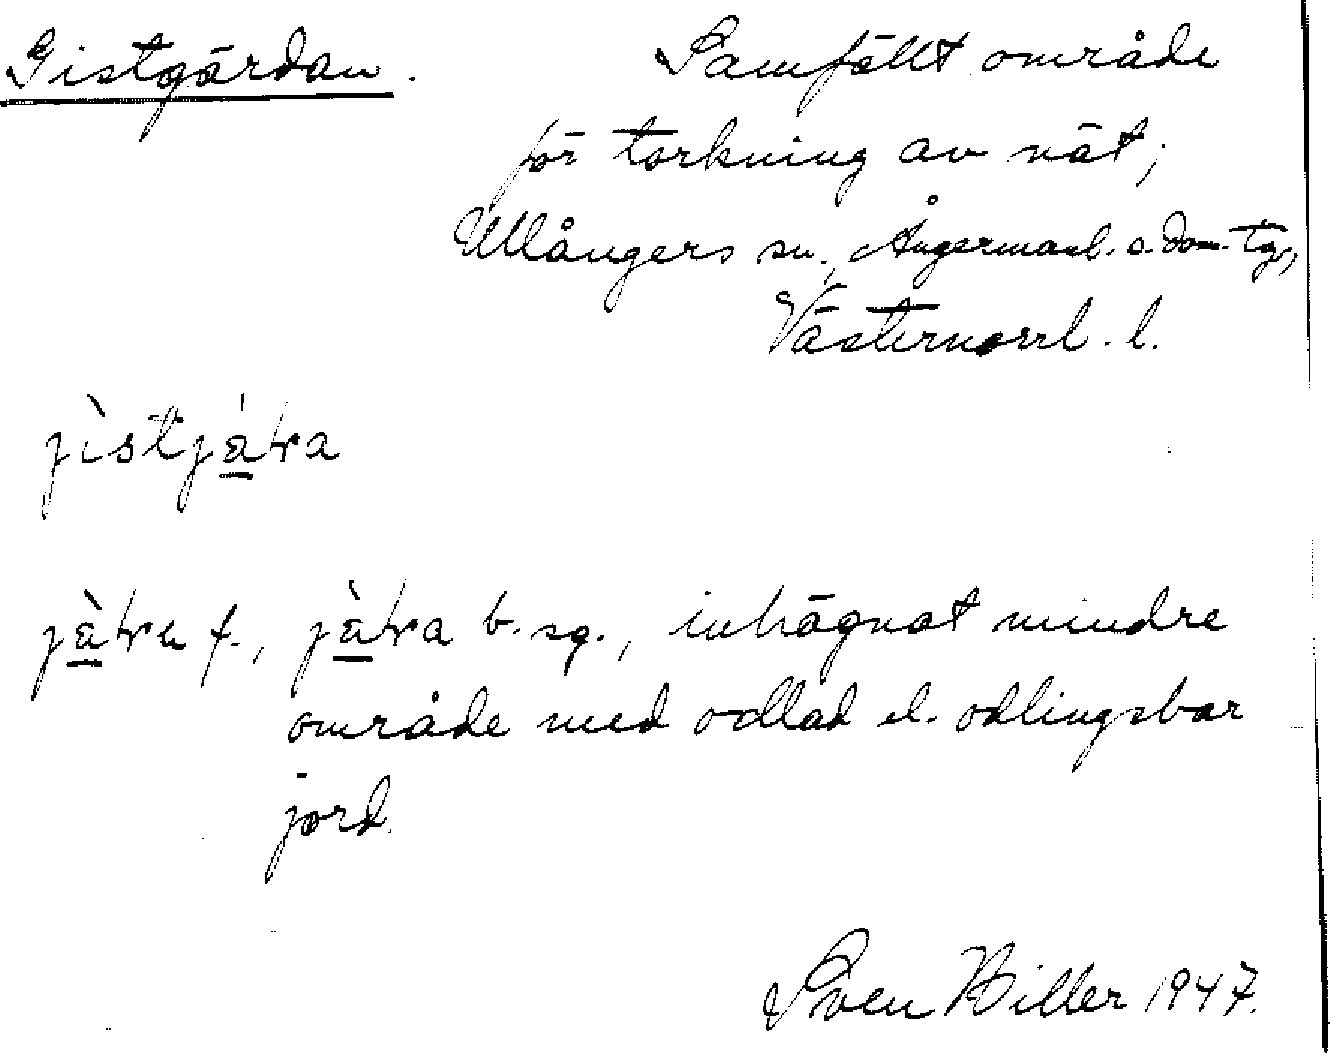 Gistgärdan. Samfällt område
för torkning av nät;
Ullångers sn., Ångermanl. s. dom. tg.,
Västernorrl. l.
jìstjára
område med odlad el. odlingsbar
jord.
f., b. sg., inhägnat mindre
Sven Hiller 1947.